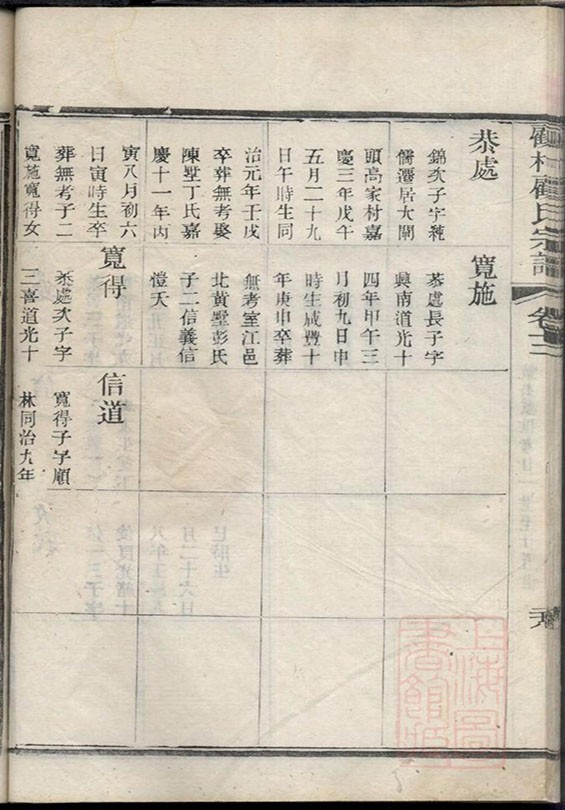 恭處
錦次子字純
儒遷居大閘
頭高家村嘉
慶三年戊午
五月二十九
日午時生同
治元年壬戌
卒葬無考娶
陳墅丁氏嘉
慶十一年丙
寅八月初六
日寅時生卒
葬無考子二
寬施寬得女一
寬施
恭處長子字
興南道光十
四年甲午三
月初九日申
時生咸豐十
年庚申卒葬
無考室江邑
北黃墅彭氏
子二信義信
愷夭
寬得
恭處次子字
三喜道光十
信道
寬得子字順
林同治九年
上海圖
書館藏